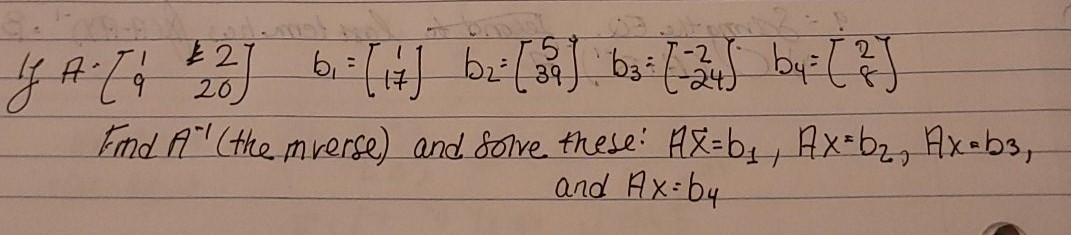 If A = [1 2; 9 20] b₁ = [1; 17] b₂ = [5; 39] b₃ = [-2; -24] b₄ = [2; 8]
Find A⁻¹ (the inverse) and solve these: Ax̄=b₁, Ax=b₂, Ax=b₃,
and Ax=b₄